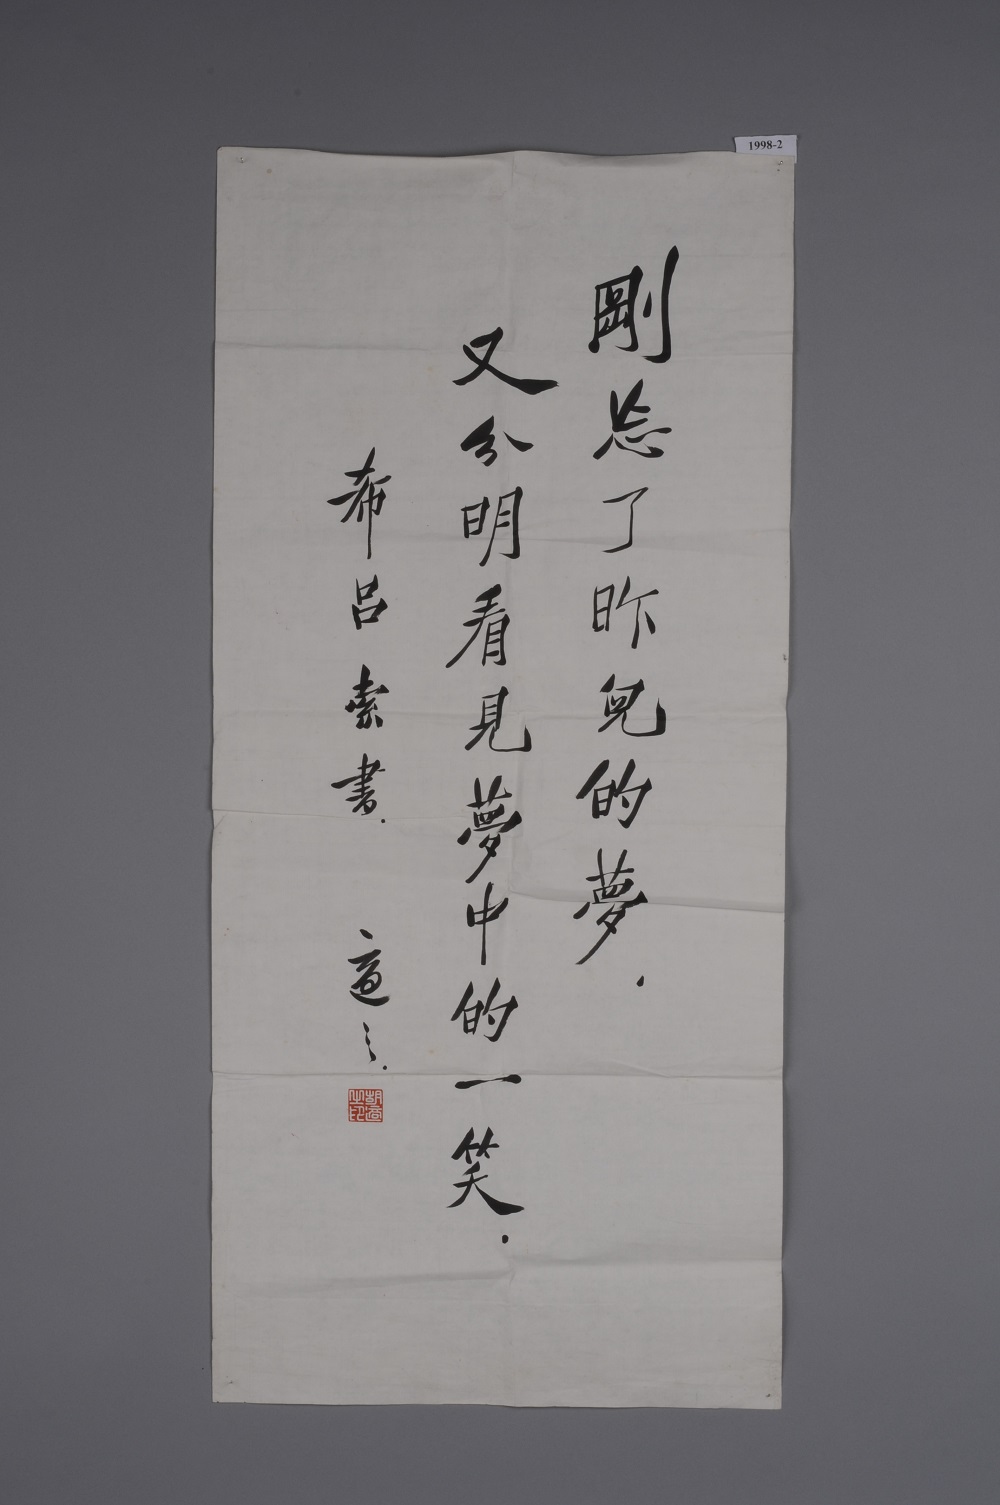 1998-2
剛忘了昨兒的夢.
又分明看見夢中的一笑.
希呂索書. 適之.
胡適
之印